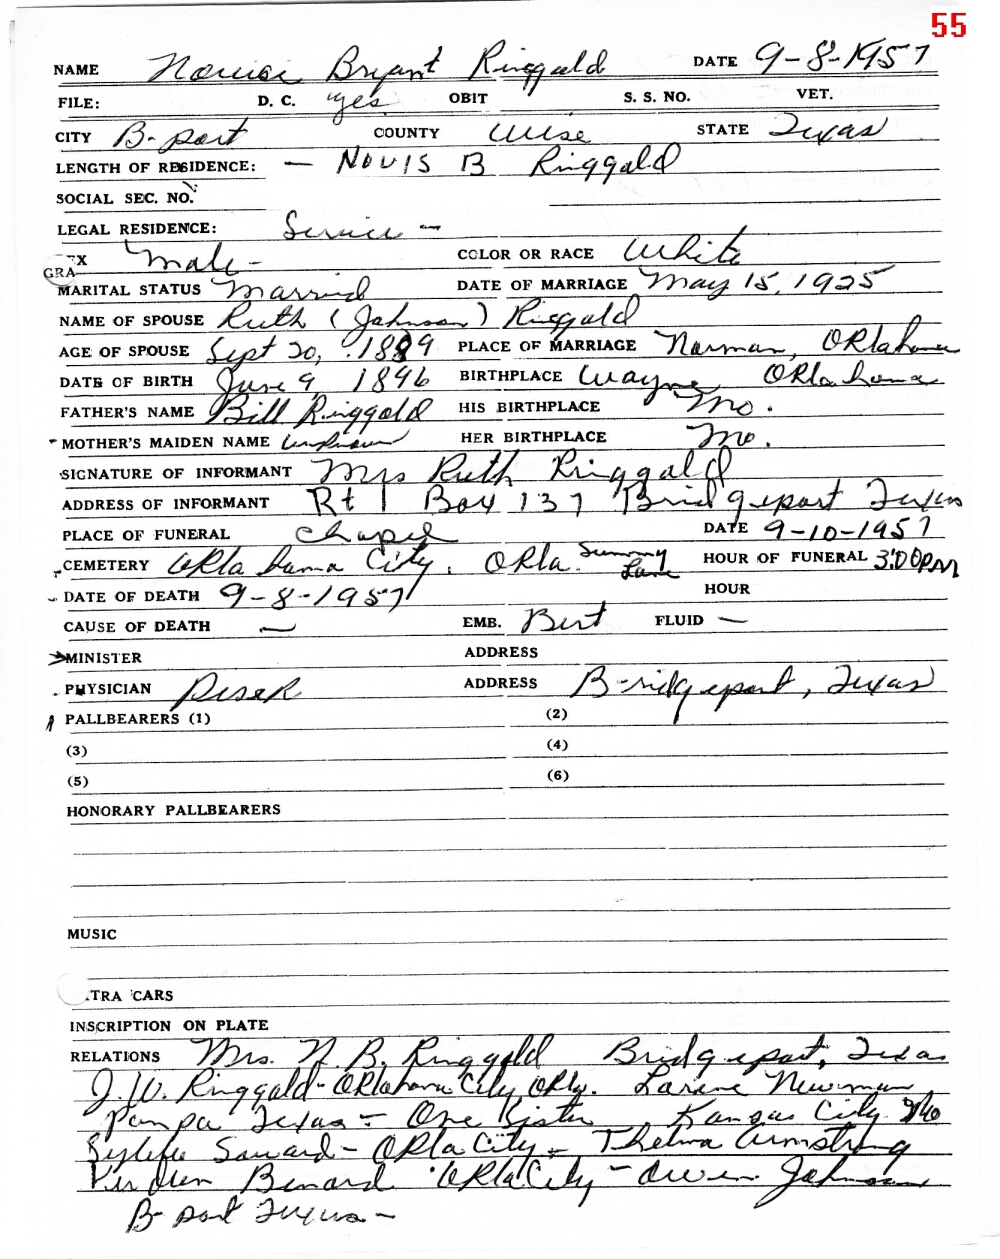 55
NAME Bryant Ringgald DATE 9-8-1957
FILE: D. C. yes OBIT S. S. NO. VET.
CITY B-port COUNTY Wise STATE Texas
LENGTH OF RESIDENCE: — NOVIS B Ringgald
SOCIAL SEC. NO.
LEGAL RESIDENCE: Service -
EX Male - COLOR OR RACE White
GRA
MARITAL STATUS Married DATE OF MARRIAGE May 15, 1925
NAME OF SPOUSE Ruth (Johnson) Ringgald
AGE OF SPOUSE Sept 20, 1889 PLACE OF MARRIAGE Norman, Oklahoma
DATE OF BIRTH June 9, 1896 BIRTHPLACE Wayne, Oklahoma
FATHER'S NAME Bill Ringgald HIS BIRTHPLACE Mo.
MOTHER'S MAIDEN NAME Unknown HER BIRTHPLACE Mo.
SIGNATURE OF INFORMANT Mrs Ruth Ringgald
ADDRESS OF INFORMANT Rt 1 Box 137 Bridgeport Texas
PLACE OF FUNERAL Chapel DATE 9-10-1957
CEMETERY Oklahoma City, Okla. Sunny Lane HOUR OF FUNERAL 3:00 PM
DATE OF DEATH 9-8-1957 HOUR
CAUSE OF DEATH — EMB. Bert FLUID —
MINISTER ADDRESS
PHYSICIAN ADDRESS Bridgeport, Texas
PALLBEARERS (1) (2)
(3) (4)
(5) (6)
HONORARY PALLBEARERS
MUSIC
TRA CARS
INSCRIPTION ON PLATE
RELATIONS Mrs. N. B. Ringgold Bridgeport, Texas
J. W. Ringgald - Oklahoma City, Okla. Newman
Pampa Texas - One Sister Kansas City Mo
- Okla City - Thelma Armstrong
Okla City - Owen Johnson
B-port Texas -